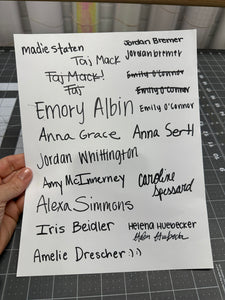 madie staten
Jordan Bremer
Taj Mack
jordan bremer
Taj Mack!
Emily O'Connor
Taj
Emily O'Connor
Emory Albin
Emily O'Connor
Anna Grace
Anna Sertl
Jordan Whittington
Amy McInnerney
Caroline
Spessard
Alexa Simmons
Iris Beidler
Helena Huebecker
Helen Huebecker
Amelie Drescher :) :)